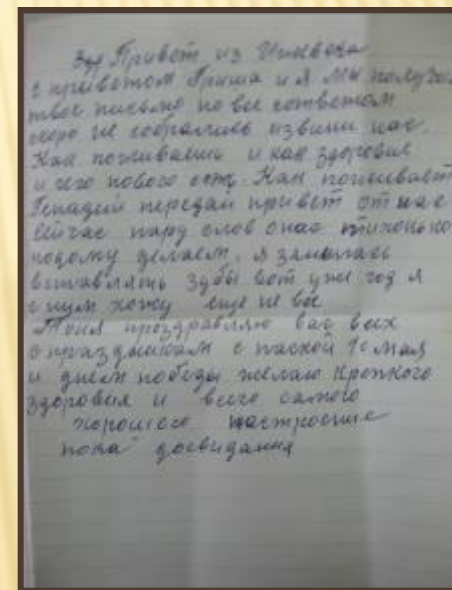 Зд Привет из Ижевска
с приветом Гриша и я мы получил
твое письмо но все сответом
скоро не собрались извини нас.
Как поживаешь и как здоровие
и чего нового есть. Как поживает
Генадий передай привет от нас
сейчас пару слов онас тихонько
подому делаем. я занилась
вставлять зубы вот уже год я
с ним хожу еще не все
Тоня проздравляю вас всех
с праздником с паской 1е мая
и днем победы желаю крепкого
здоровия и всего самого
хорошего настроение
пока досвидания